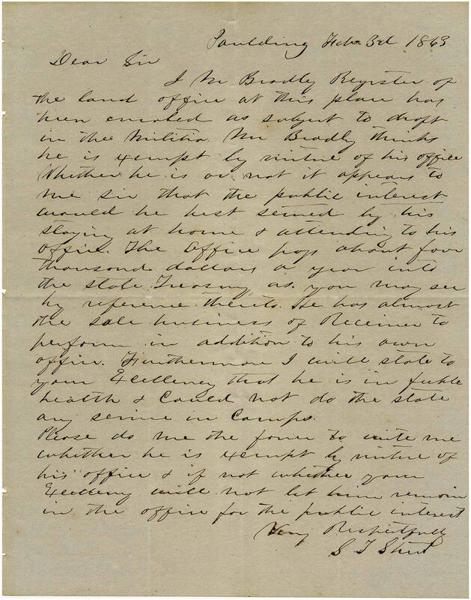 Paulding Feb 3d 1863
Dear Sir
J M Bradly Register of
the land office at this place has
been enroled as subject to draft
in the Militia Mr Bradly thinks
he is exempt by virtue of his office
Whether he is or not it appears to
me Sir that the public interest
would be best served by his
staying at home & attending to his
office. The Office pays about four
thousand dollars a year into
the state Treasury as you may see
by reference thereto. He has almost
the sole business of Receiver to
perform in addition to his own
office. Furthermore I will state to
your Excellency that he is in feeble
health & could not do the state
any service in Camps.
Please do me the favor to write me
whether he is exempt by virtue of
his office & if not whether your
Excellency will not let him remain
in the office for the public interest
Very Respectfully
S J